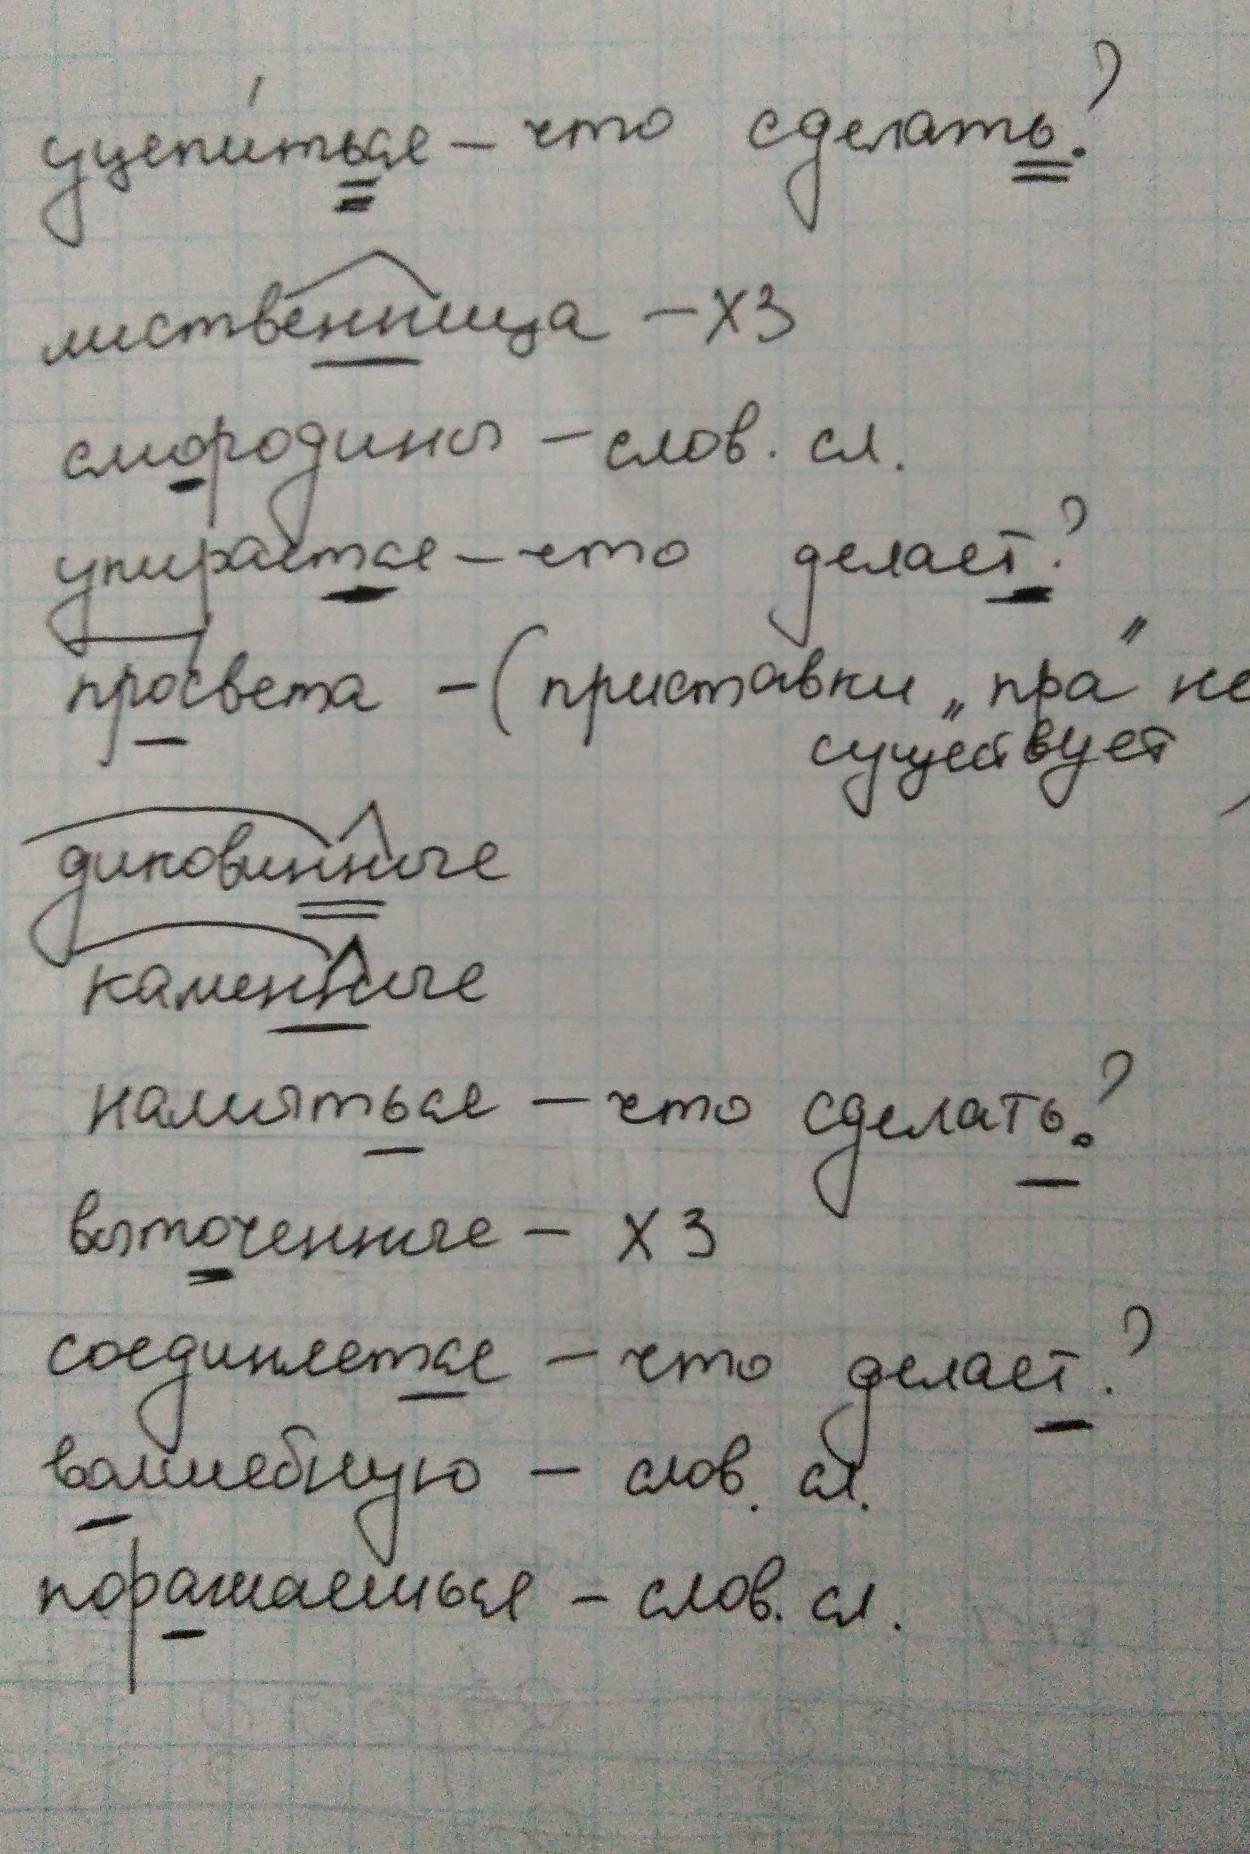 уцепиться – что сделать?
лиственница – ХЗ
смородины – слов. сл.
упирается – что делает?
просвета – (приставки „пра" не
существует)
диковинные
каменные
намияться – что сделать?
выточенные – ХЗ
соединяется – что делает?
волшебную – слов. сл.
поражаешься – слов. сл.